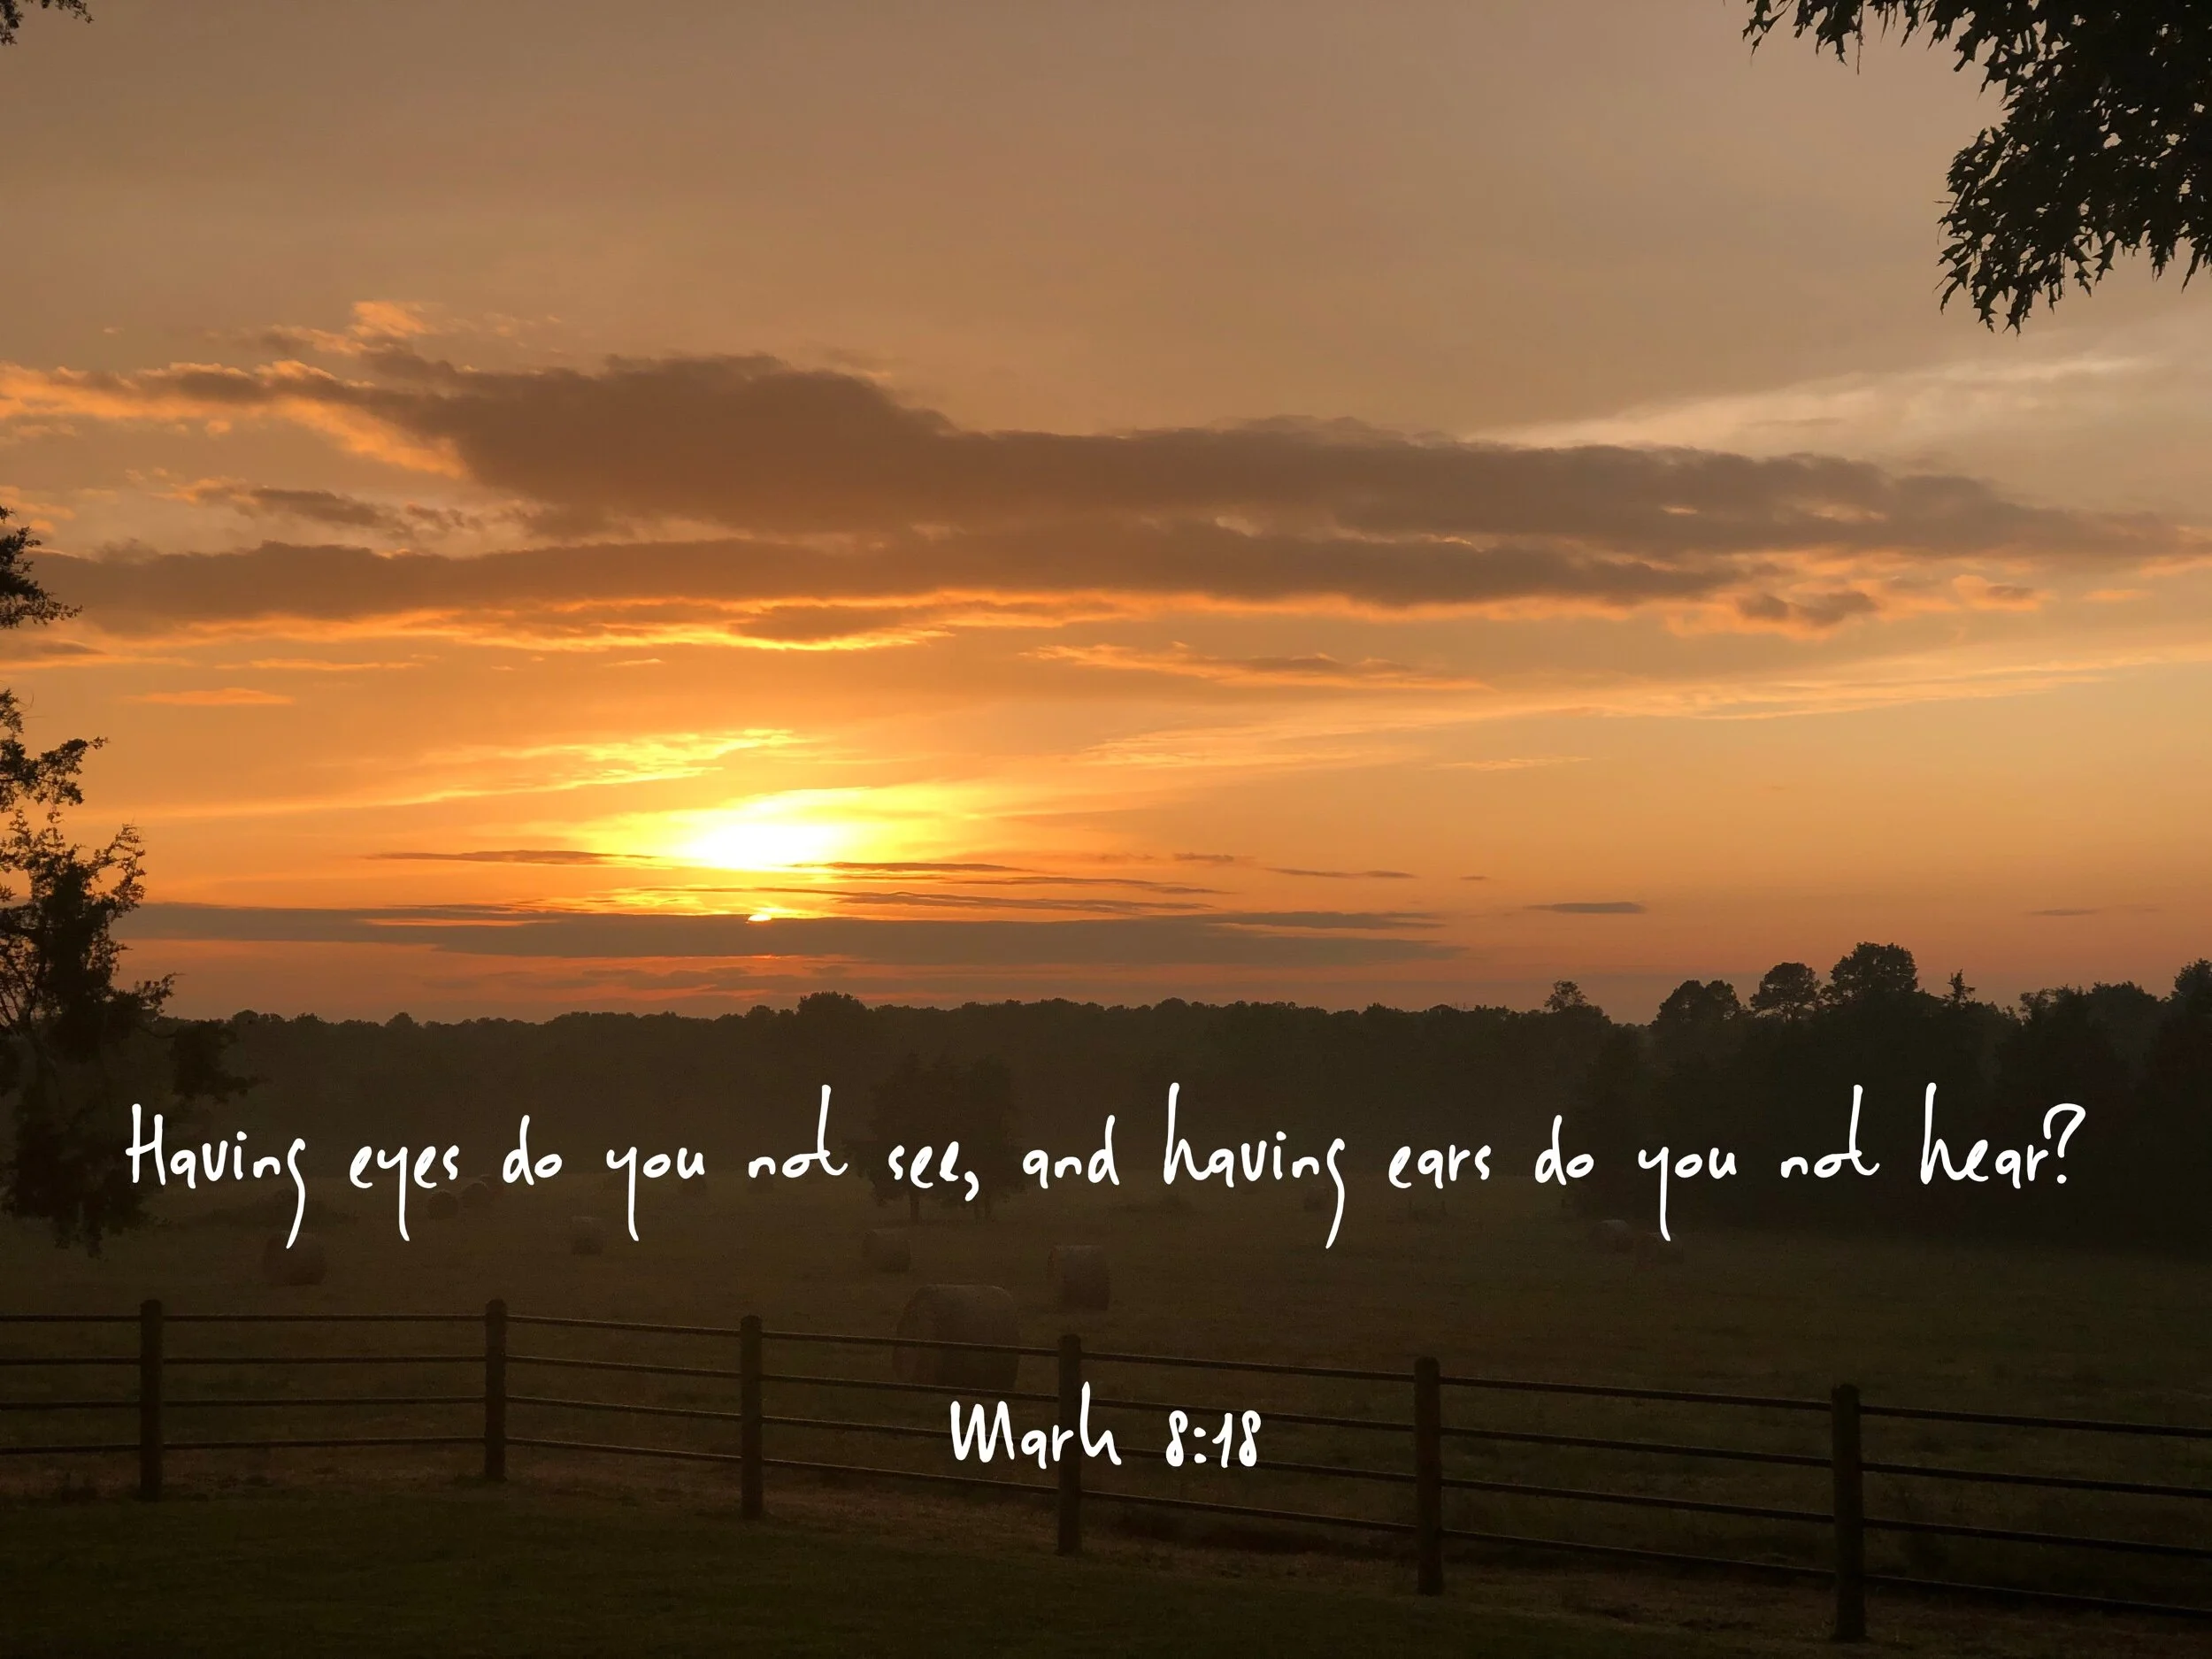 Having eyes do you not see, and having ears do you not hear?
Mark 8:18